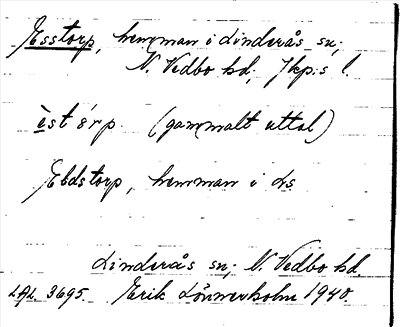 Esstorp, hemman i Linderås sn;
N. Vedbo hd; Jkp:s l.
èst órp. (gammalt uttal)
Ebdstorp, hemman i ds.
Linderås sn; N. Vedbo hd.
LAL 3695. Erik Lönnerholm 1940.